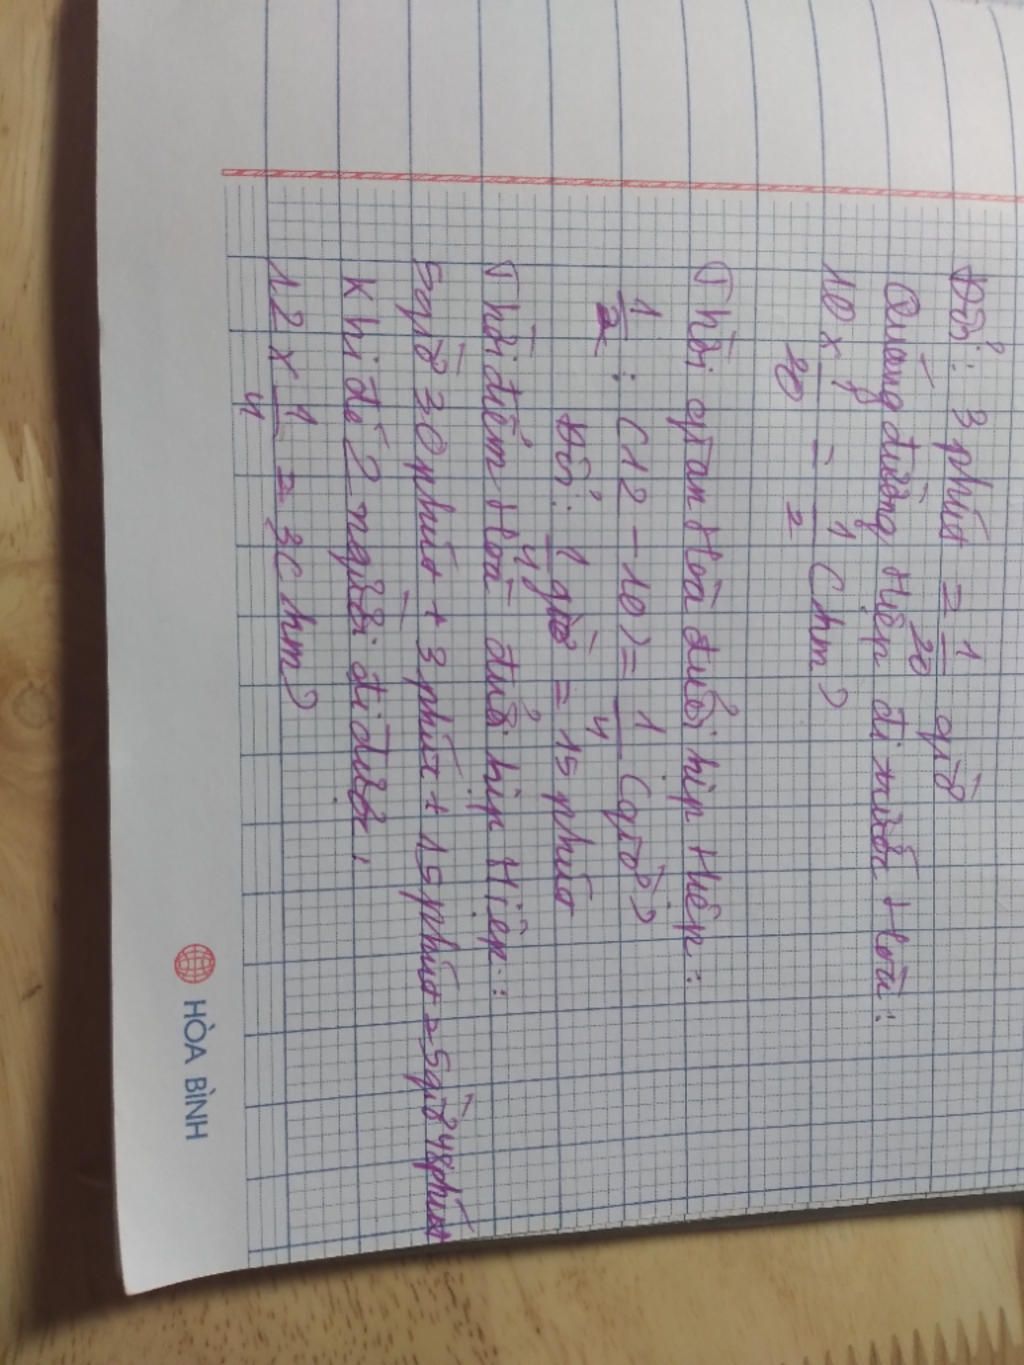 Đổi: 3 phút = 1/20 giờ
Quãng đường Hiệp đi trước Hoà:
10 x 1/20 = 1/2 (km)
Thời gian Hoà đuổi kịp Hiệp:
1/2 : (12 - 10) = 1/4 (giờ)
Đổi: 1/4 giờ = 15 phút
Thời điểm Hoà đuổi kịp Hiệp:
5giờ 30phút + 3phút + 15phút = 5giờ 48phút
Khi đó 2 người đi được:
12 x 1/4 = 3(km)
HÒA BÌNH